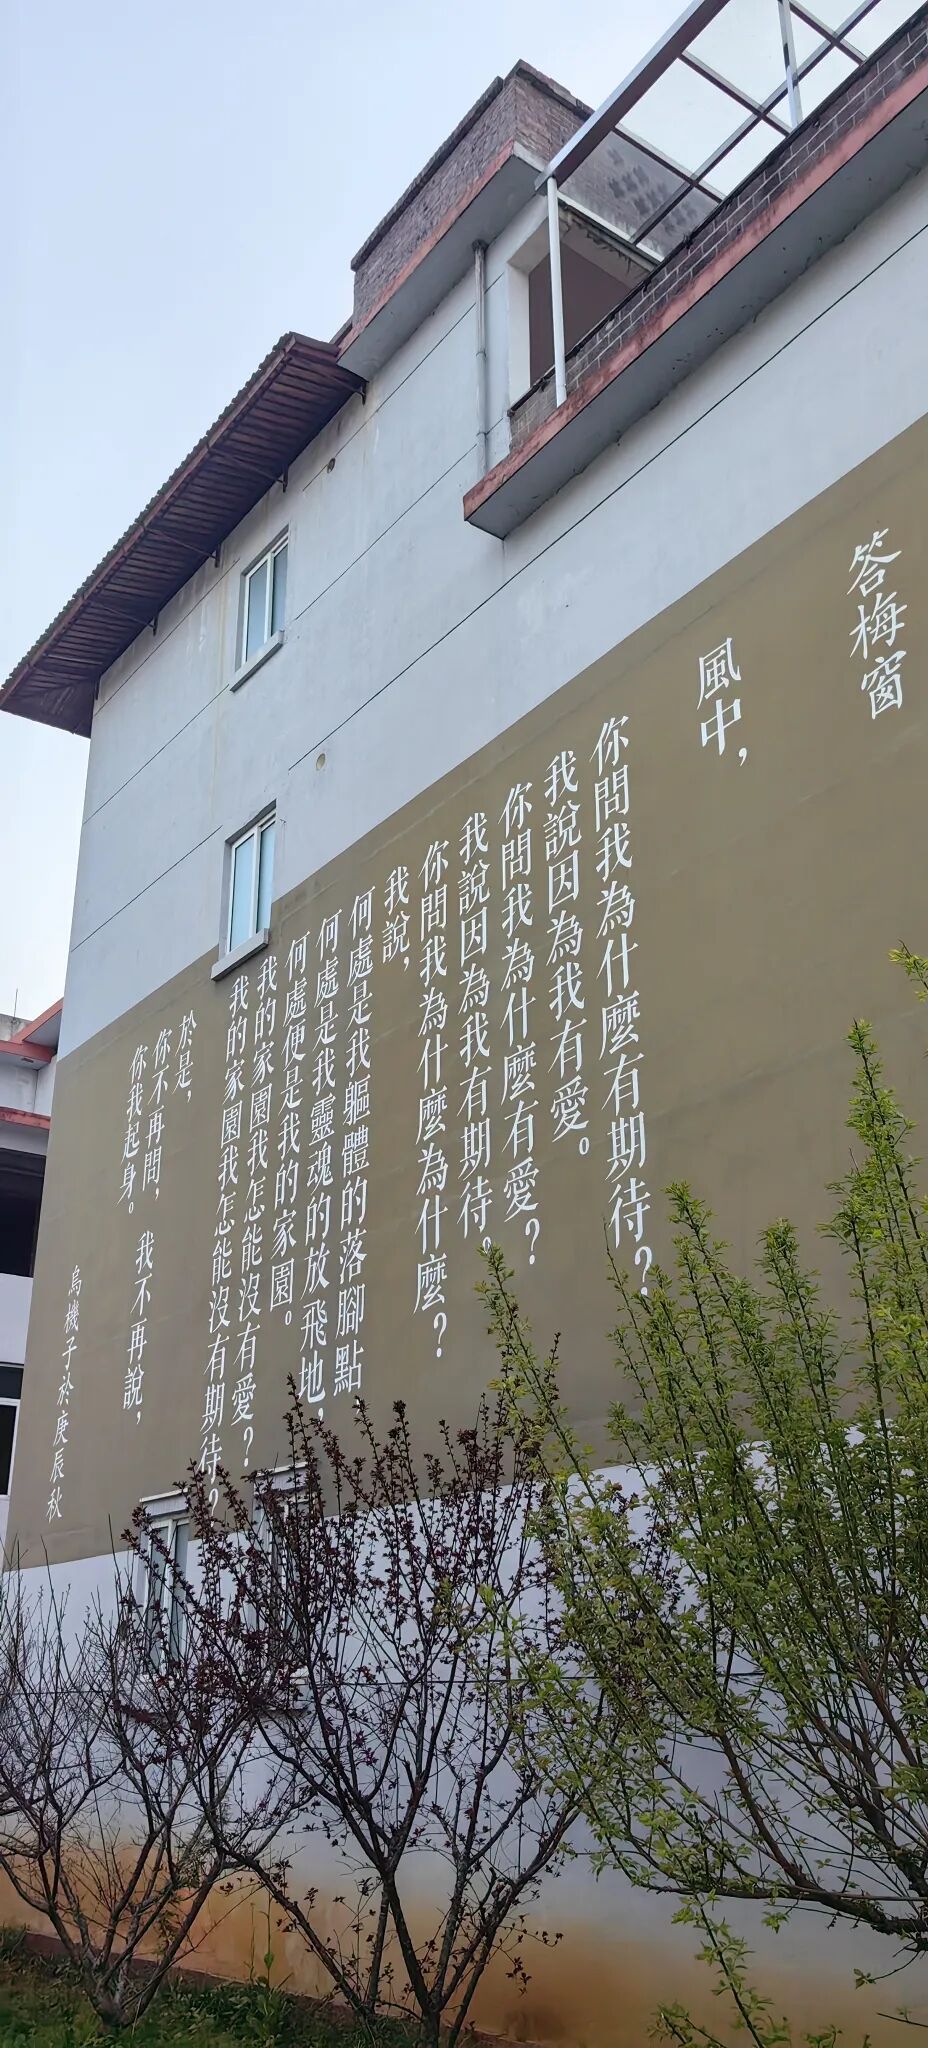 答梅窗
風中，
你問我為什麼有期待？
我說因為我有愛。
你問我為什麼有愛？
我說因為我有期待。
你問我為什麼為什麼？
我說，
何處是我軀體的落腳點，
何處是我靈魂的放飛地，
何處便是我的家園。
我的家園我怎能沒有愛？
我的家園我怎能沒有期待？
於是，
你不再問， 我不再說，
你我起身。
烏機子於庚辰秋